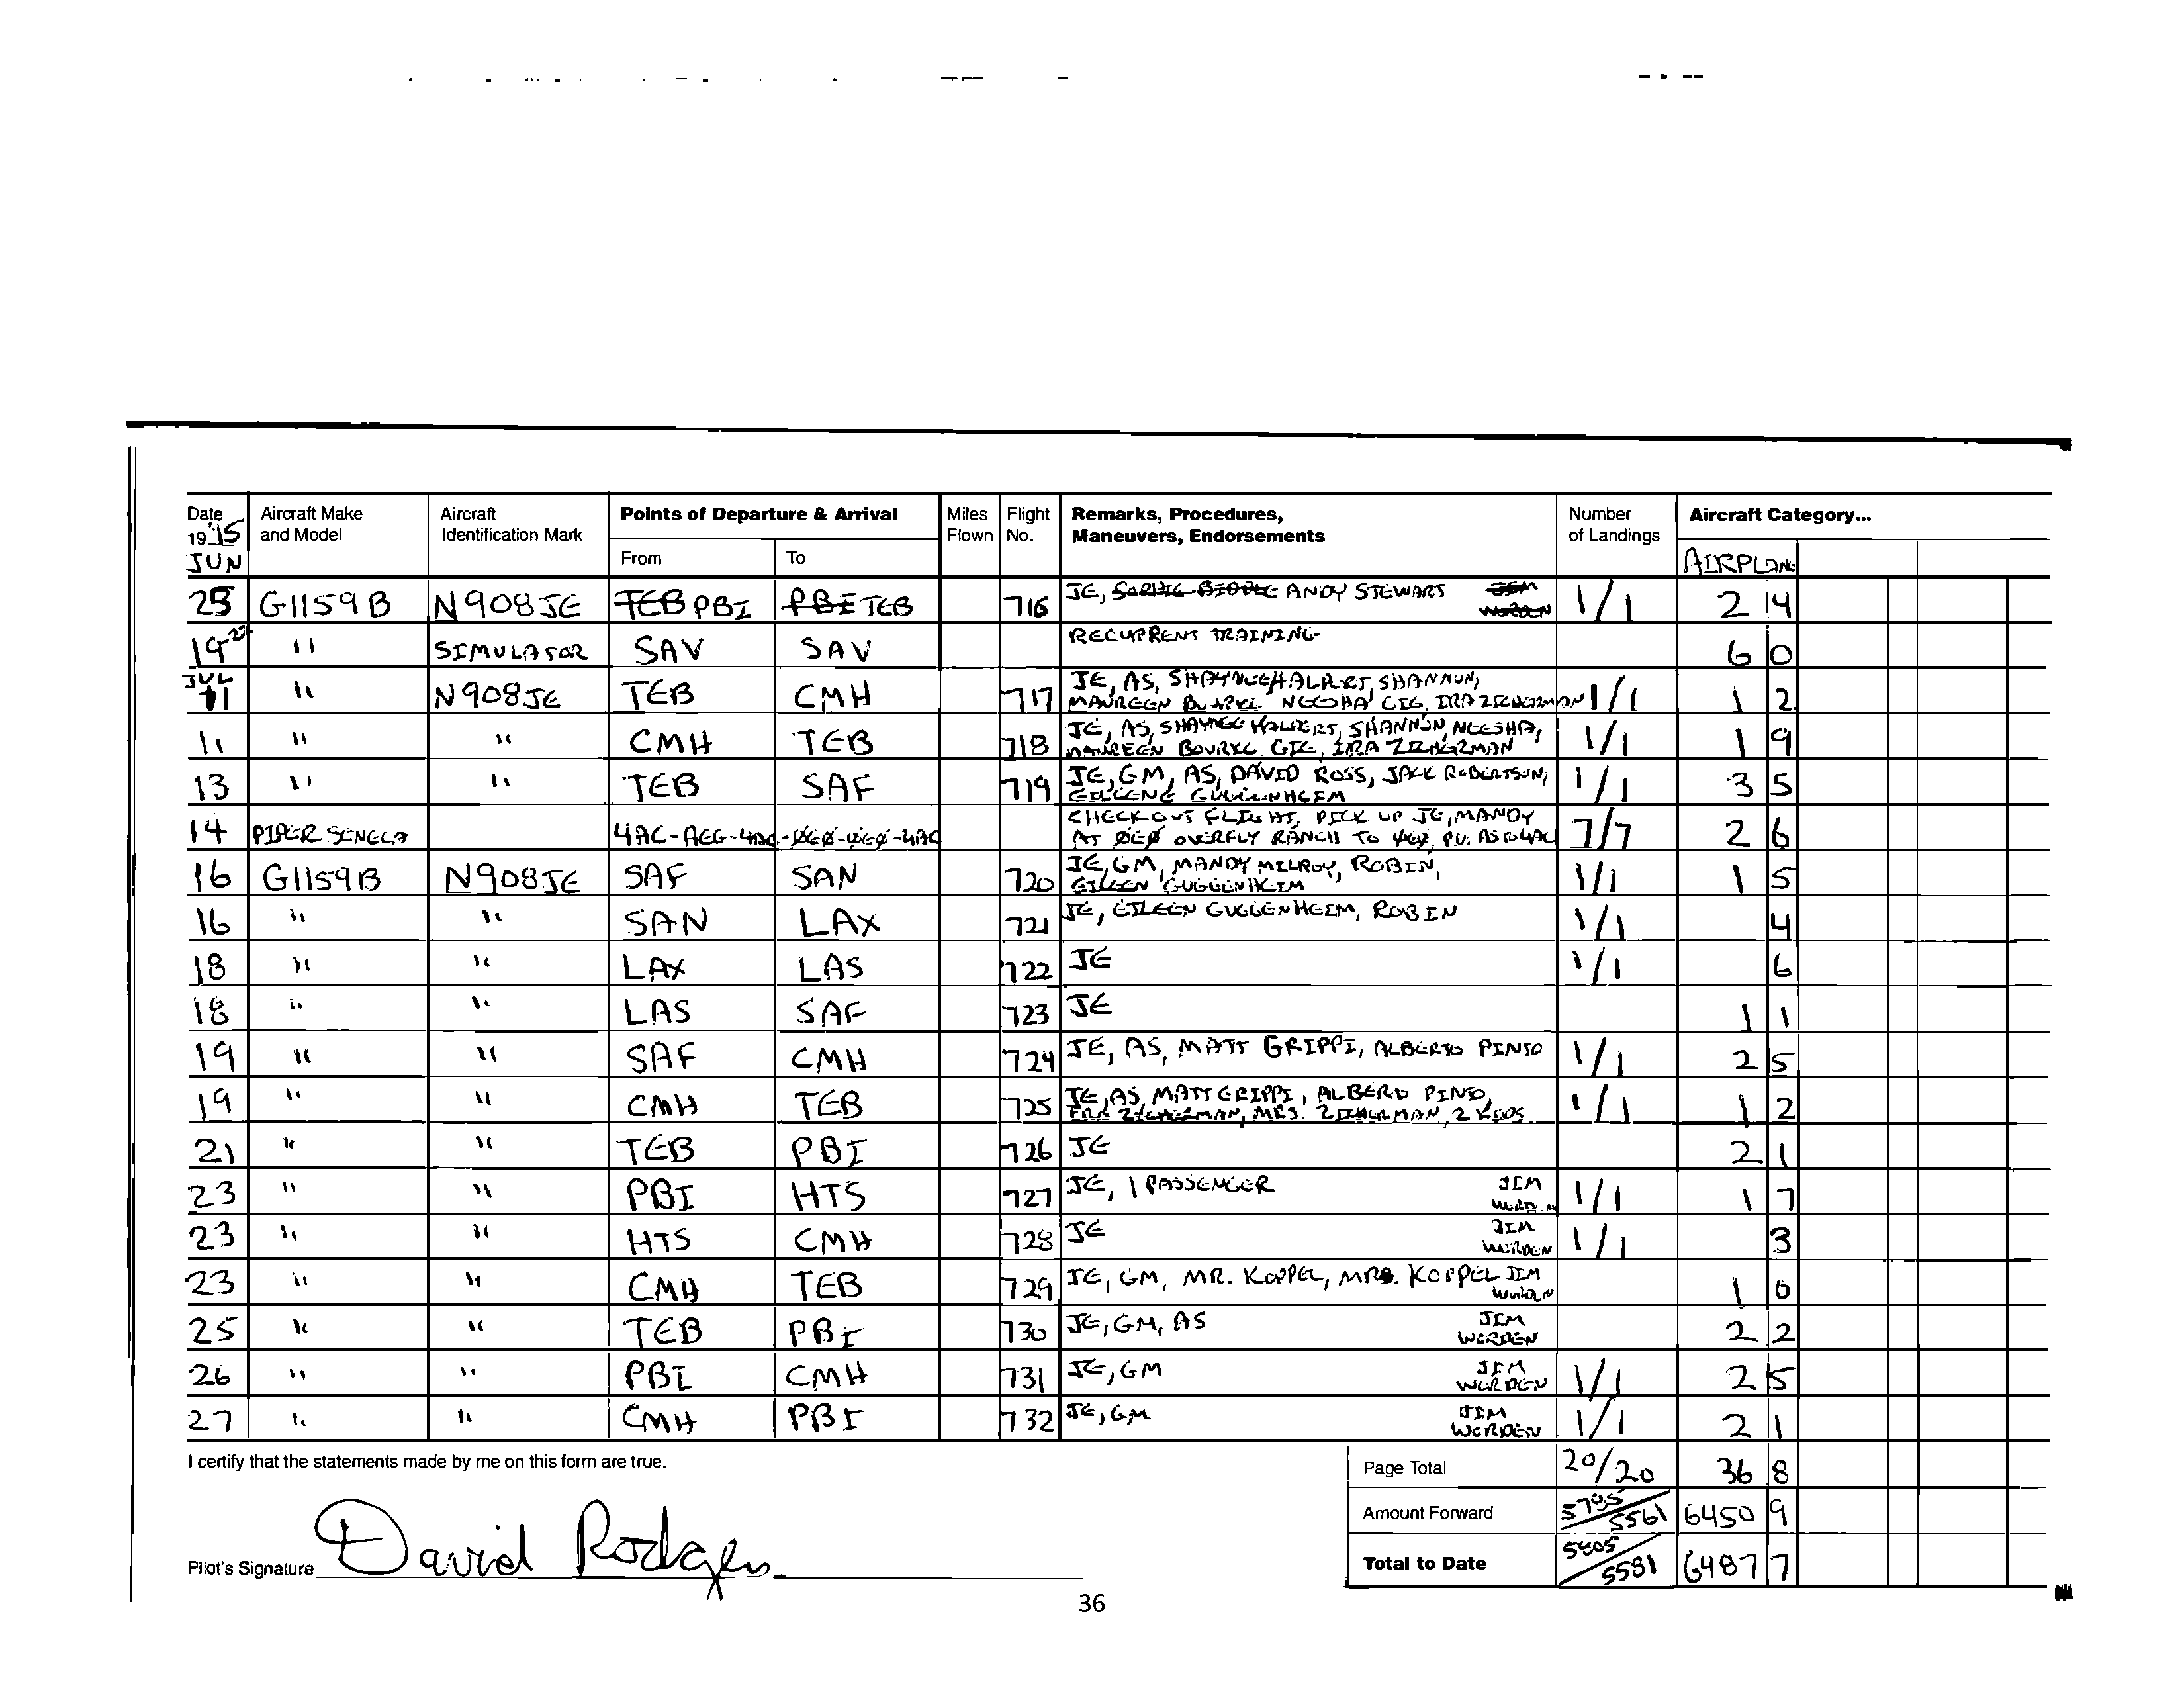 Date Aircraft Make Aircraft Points of Departure & Arrival Miles Flight Remarks, Procedures, Number Aircraft Category...
19 95 and Model Identification Mark Flown No. Maneuvers, Endorsements of Landings
JUN From To AIRPLANE
25 G1159B N908JE TEB PBI PBI TEB 716 JE, ANDY STEWART 1/1 2 4
19-23 " SIMULATOR SAV SAV RECURRENT TRAINING 6 0
JUL
11 " N908JE TEB CMH 717 JE, AS, SHANNON, 1/1 1 2
MAUREEN NEESHA
11 " " CMH TEB 718 JE, AS, SHANNON, NEESHA, 1/1 1 9
MAUREEN BOURKE
13 " " TEB SAF 719 JE, GM, AS, DAVID ROSS, JACK ROBERTSON, 1/1 3 5
GUGGENHEIM
14 PIPER SENECA CHECKOUT FLIGHT, PICK UP JE, MANDY 7/7 2 6
AT 0E0 OVERFLY RANCH TO
16 G1159B N908JE SAF SAN 720 JE, GM, MANDY MILROY, ROBIN, 1/1 1 5
EILEEN GUGGENHEIM
16 " " SAN LAX 721 JE, EILEEN GUGGENHEIM, ROBIN 1/1 4
18 " " LAX LAS 722 JE 1/1 6
18 " " LAS SAF 723 JE 1 1
19 " " SAF CMH 724 JE, AS, MATT GRIPPI, ALBERTO PINTO 1/1 2 5
19 " " CMH TEB 725 JE, AS, MATT GRIPPI, ALBERTO PINTO, 1/1 1 2
MRS. 2 KIDS
21 " " TEB PBI 726 JE 2 1
23 " " PBI HTS 727 JE, 1 PASSENGER JIM WORDEN 1/1 1 7
23 " " HTS CMH 728 JE JIM WORDEN 1/1 3
23 " " CMH TEB 729 JE, GM, MR. KOPPEL, MRS. KOPPEL JIM WORDEN 1 6
25 " " TEB PBI 730 JE, GM, AS JIM WORDEN 2 2
26 " " PBI CMH 731 JE, GM JIM WORDEN 1/1 2 5
27 " " CMH PBI 732 JE, GM JIM WORDEN 1/1 2 1
I certify that the statements made by me on this form are true. Page Total 20/20 36 8
Amount Forward 5561 6450 9
Pilot's Signature David Rodgers Total to Date 5581 6487 7
36